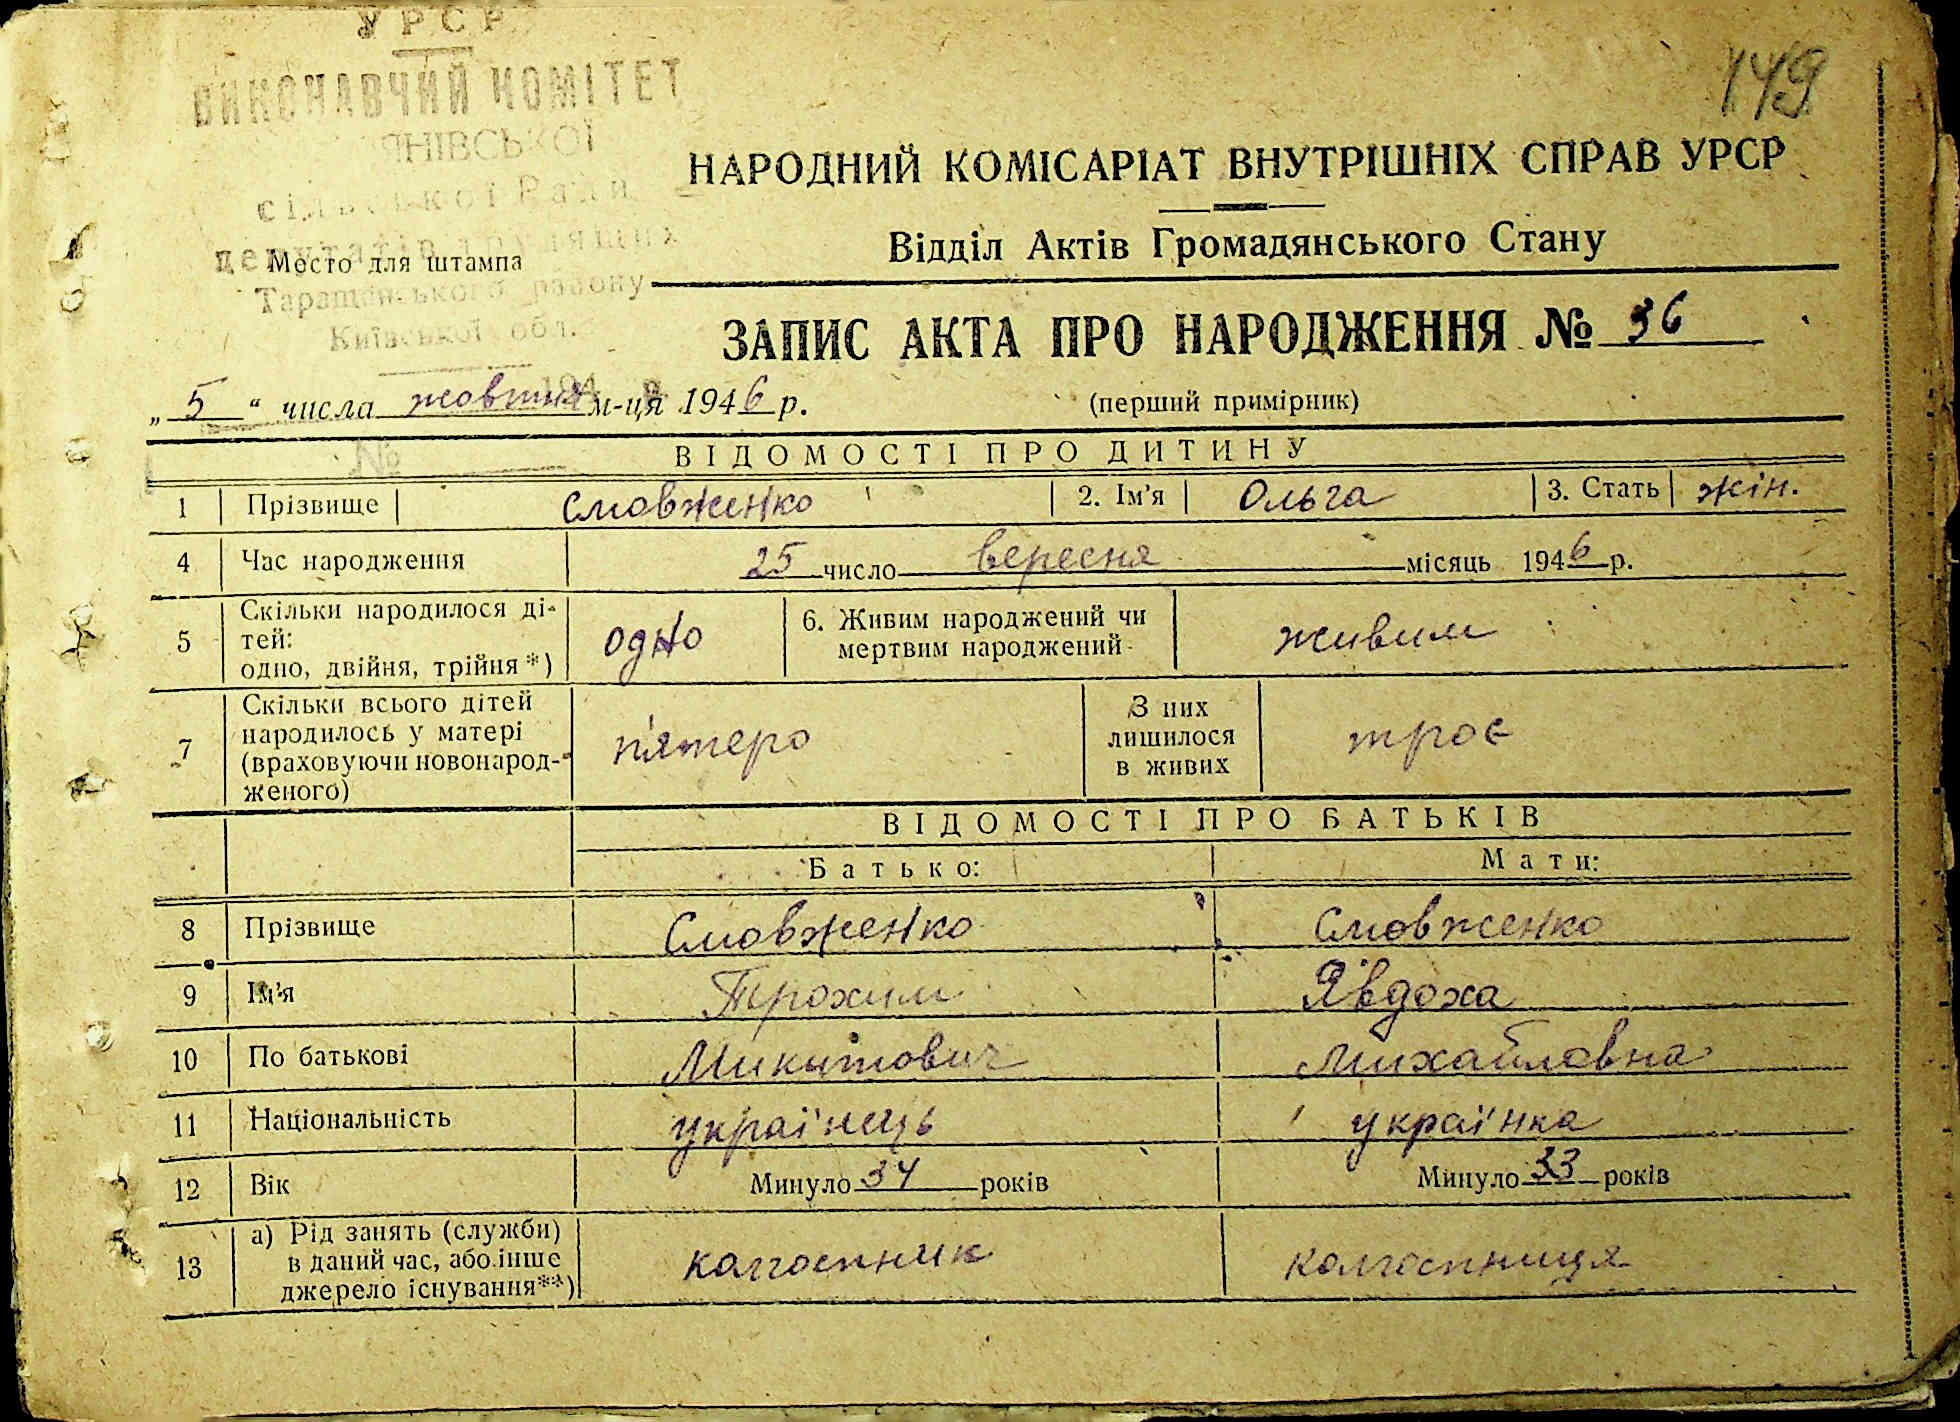 УРСР
ВИКОНАВЧИЙ КОМІТЕТ
ЯНІВСЬКОЇ
сільської Ради
депутатів трудящих
Место для штампа
Таращанського району
Київської обл.
194 р.
№
149
НАРОДНИЙ КОМІСАРІАТ ВНУТРІШНІХ СПРАВ УРСР
Відділ Актів Громадянського Стану
ЗАПИС АКТА ПРО НАРОДЖЕННЯ № 36
„5“ числа жовтня м-ця 1946 р.
(перший примірник)
ВІДОМОСТІ ПРО ДИТИНУ
1 Прізвище Смовженко 2. Ім'я Ольга 3. Стать жін.
4 Час народження 25 число вересня місяць 1946 р.
5 Скільки народилося ді-
тей:
одно, двійня, трійня*) одно 6. Живим народжений чи
мертвим народжений живим
7 Скільки всього дітей
народилось у матері
(враховуючи новонарод-
женого) п'ятеро З них
лишилося
в живих троє
ВІДОМОСТІ ПРО БАТЬКІВ
Батько: Мати:
8 Прізвище Смовженко Смовженко
9 Ім'я Трохим Явдоха
10 По батькові Микитович Михайловна
11 Національність українець українка
12 Вік Минуло 34 років Минуло 33 років
13 а) Рід занять (служби)
в даний час, або інше
джерело існування**) колгоспник колгоспниця